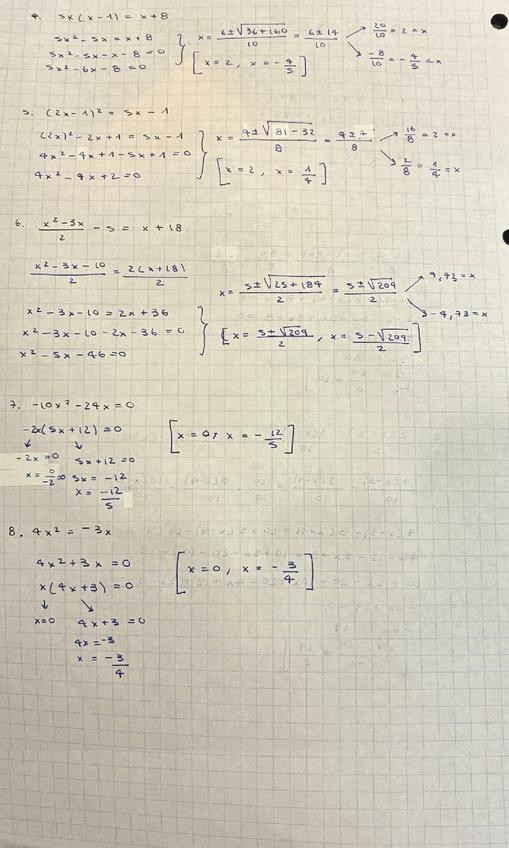 4. 5x(x-1) = x+8
5x²-5x = x+8
5x²-5x-x-8=0
5x²-6x-8=0
x = (6±√(36+160))/10 = (6±14)/10
20/10 = 2 = x
-8/10 = -4/5 = x
[x=2, x=-4/5]
5. (2x-1)² = 5x-1
(2x)²-2x+1 = 5x-1
4x²-4x+1-5x+1=0
4x²-9x+2=0
x = (9±√(81-32))/8 = (9±7)/8
16/8 = 2 = x
2/8 = 1/4 = x
[x=2, x=1/4]
6. (x²-3x)/2 - 5 = x+18
(x²-3x-10)/2 = 2(x+18)/2
x²-3x-10 = 2x+36
x²-3x-10-2x-36=0
x²-5x-46=0
x = (5±√(25+184))/2 = (5±√209)/2
9,73=x
-4,73=x
[x=(5+√209)/2, x=(5-√209)/2]
7. -10x²-24x=0
-2x(5x+12)=0
-2x=0
x=0/-2=0
5x+12=0
5x=-12
x=-12/5
[x=0, x=-12/5]
8. 4x²=-3x
4x²+3x=0
x(4x+3)=0
x=0
4x+3=0
4x=-3
x=-3/4
[x=0, x=-3/4]